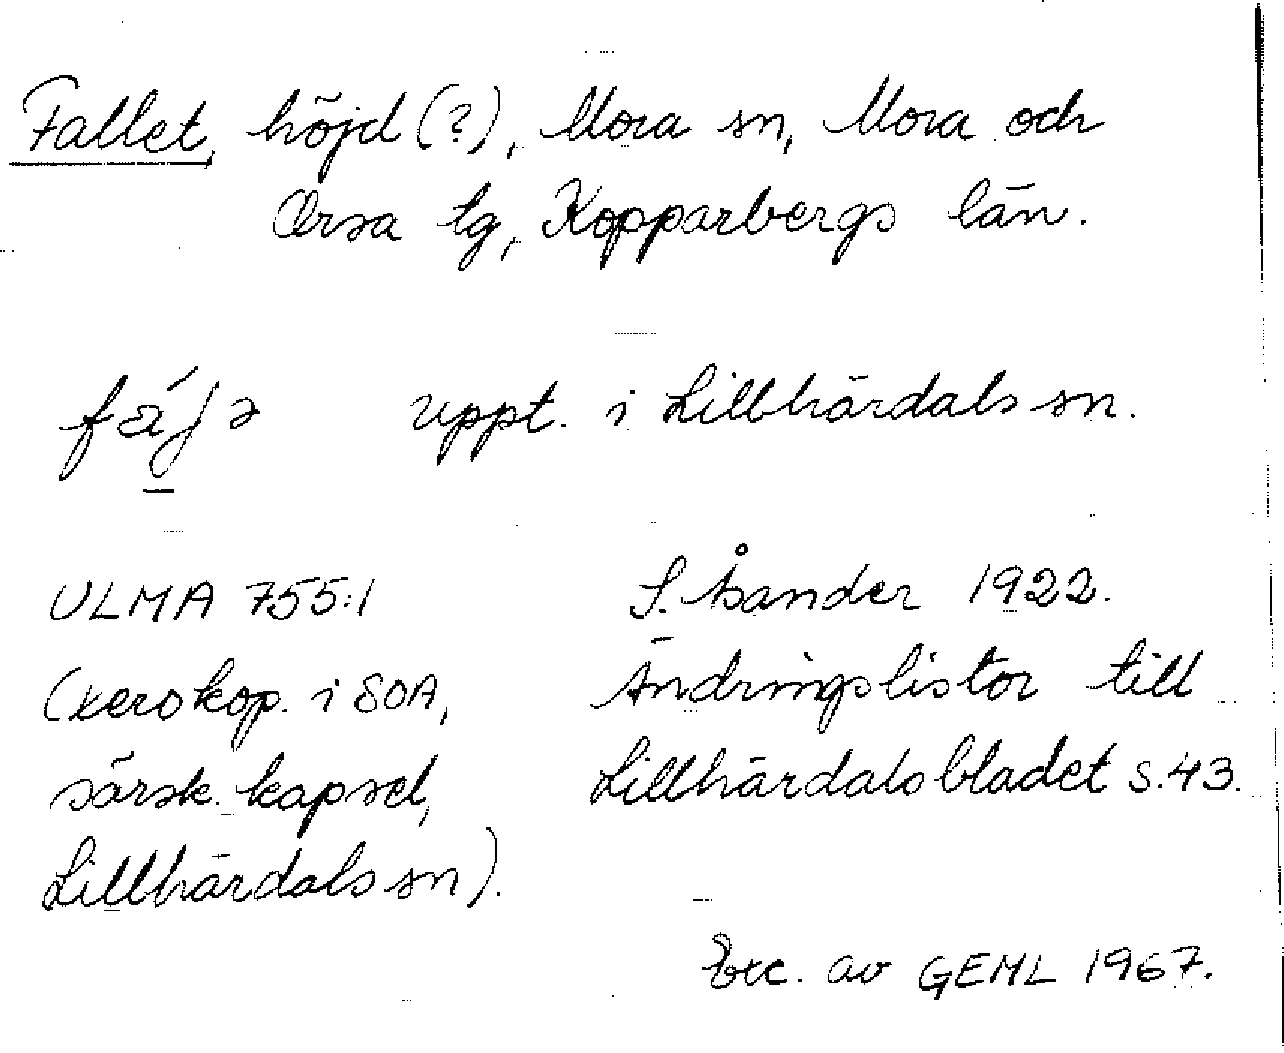 Fallet, höjd (?), Mora sn, Mora och
Orsa tg, Kopparbergs län.
uppt. i Lillhärdals sn.
ULMA 755:1 S. Åander 1922.
(xerokop. i SOA, Ändringslistor till
särsk. kapsel, Lillhärdalsbladet s. 43.
Lillhärdals sn).
Exc. av GEML 1967.